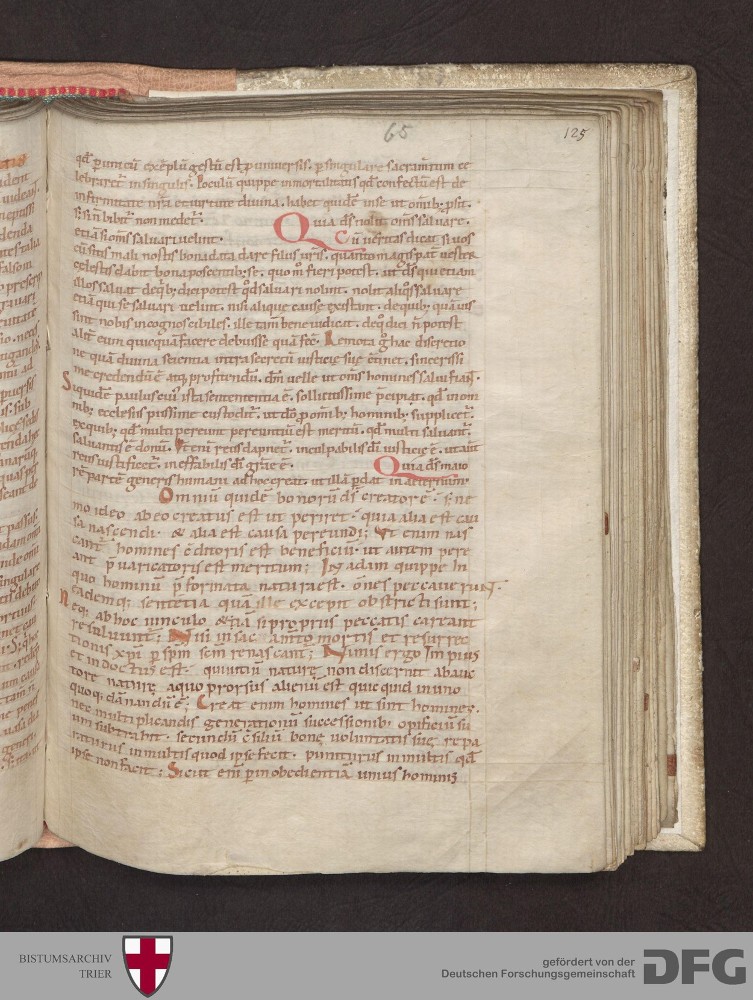 65
125
qđ p̱ uno cū exēplū gestū est p̱ universis. p̱ singulare sacram̄tum ce
lebraret᷑ in singulis. Poculū quippe inmortalitatis qđ confectū est de
infirmitate n̄ra et virtute divina. habet quidē in se ut omīb; p̱sit.
s; si n̄ bibit᷑ non medet᷑. Quia d̄s nolit om̄s salvare.
etiā si om̄s salvari velint. Cū veritas dicat si vos
cū sitis mali nostis bona data dare filiis vr̄is. quanto magis pat̄ vester
celestis dabit bona poscentib; se. quo m̊ fieri potest. ut d̄s qui etiam
illos salvat de q̄b; dici potest qđ salvari nolint. nolit aliq̊s salvare
etiā qui se salvari velint. nisi alique cause existant. de quib; quāvis
sint nobis incognoscibiles. ille tam̄ bene iudicat. de q̊ dici n̄ potest
alit̄ eum quicquā facere debuisse quā fec̄. Remota g̊ hac discretio
ne quā divina scientia intra secretū iusticie sue c̄tinet. sincerissi
me credendū ē atq; profitendū. dm̄ velle ut om̄s homines salvi fiant.
Siquidē paulus cui᷒ ista sententia ē. sollicitissime p̄cipiat. qđ in om
nib; ecclesiis piissime custodit᷑. ut dō p̱ omīb; hominib; supplicet᷑.
ex quib; qđ multi pereunt pereuntiū est meritū. qđ multi salvant᷑.
salvantis ē donū. Ut enī reus dapnet᷑. inculpabilis dī iusticie ē. ut aūt
reus iustificet᷑. ineffabilis dī gr̄ie ē. Quia d̄s maio
rē partē generis humani ad hoc creat. ut illā p̱dat in aeternum.
Omniū quidē bonorū d̄s creator ē. s; ne
mo ideo ab eo creatus est ut periret. quia alia est cau
sa nascendi. & alia est causa pereundi; Ut enim nas
cant᷑ homines c̄ditoris est beneficiū. ut autem pere
ant p̄varicatoris est meritum; In adam quippe in
quo hominū p̄formata natura est. om̄es peccaverunt.
eadem q; sentētia quā ille excepit obstricti sunt;
Neq; ab hoc vinculo & iā si propriis peccatis careant
resolvunt᷑; Nisi in sacramto mortis et resurrec
tionis xp̄i p̱ spm̄ sc̄m renascant᷑; Nimis ergo impius
et indoctus est. qui vitiū nature non discernit ab auc
tore nature a quo prorsus alienū est quicquid in uno
quoq; dānandū ē; Creat enim homines ut sint homines.
nec multiplicandis generationū successionib; opificiū su
um subtrahit. secundū c̄siliū bone voluntatis sue repa
raturus in multis quod ipse fecit. puniturus in multis qđ
ipse non facit; Sicut enī p̱ inobedientiā unius hominis
BISTUMSARCHIV
TRIER
gefördert von der
Deutschen Forschungsgemeinschaft
DFG